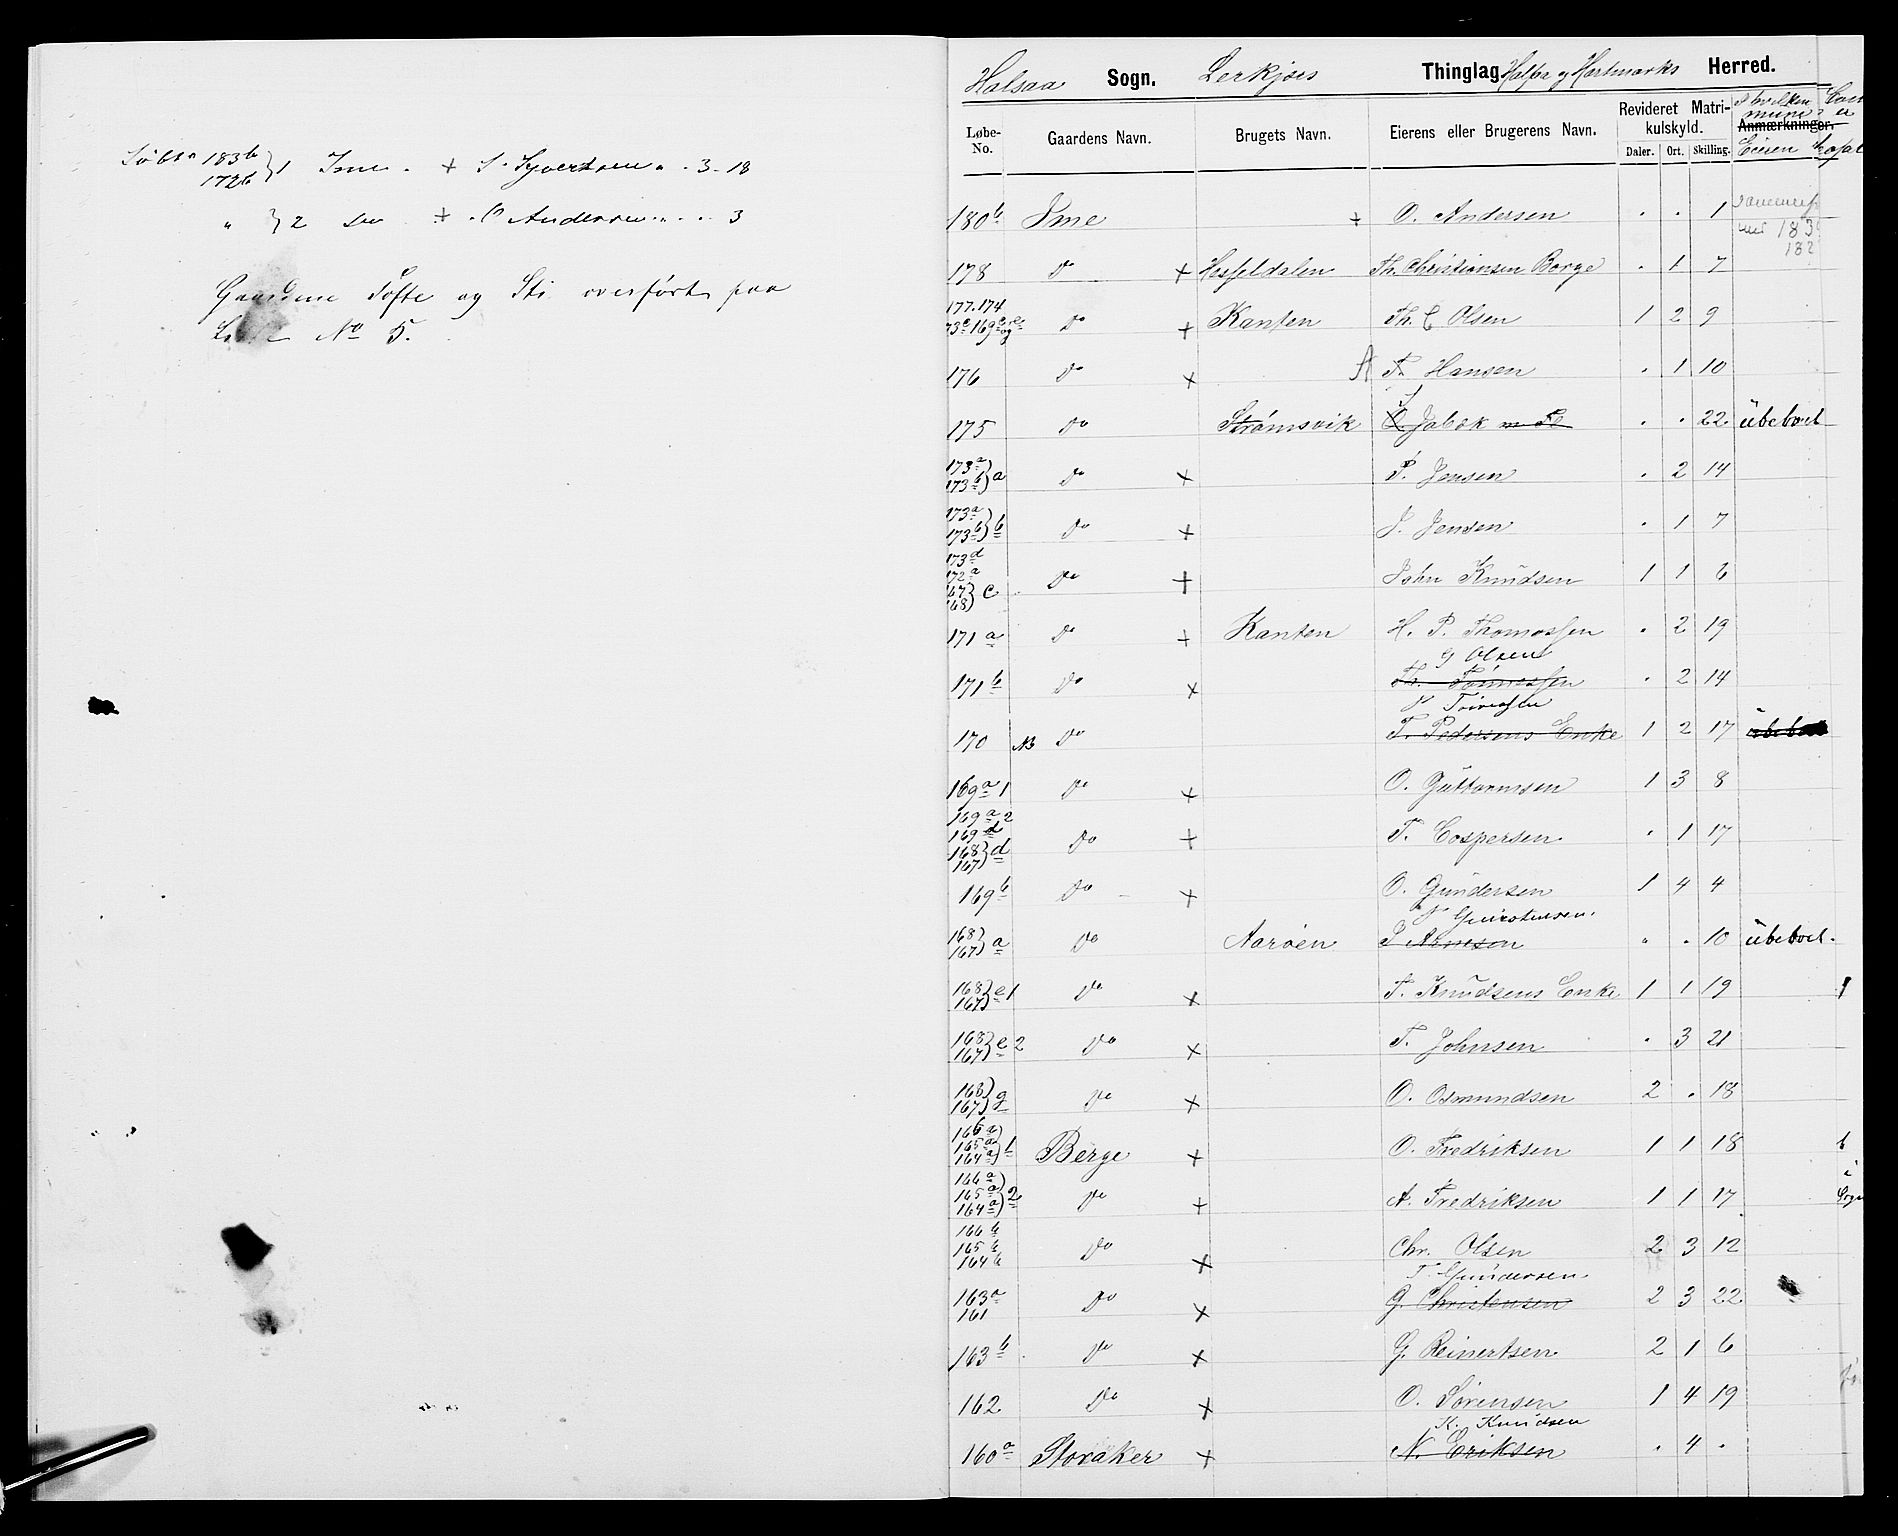 Løbe No 183b } 1 Ime . + S. Syvertsen . . 3 . 18
172b
" } 2 Do + . O Andersen . . . 3
Gaardene Tofte og Sti overført paa
No 5.
Halsaa Sogn. Lerkjærs Thinglag Halsaa og Hartmarks Herred.
Løbe-No. Gaardens Navn. Brugets Navn. Eierens eller Brugerens Navn. Revideret Matrikulskyld. Anmærkninger.
Daler. Ort. Skilling. Eieren
180b Ime + O. Andersen . . 1
178 Do + Hesseldalen Th. Christiansen Borge . 1 7
177.174
73c 169c og e Do + Kanten Th. C Olsen 1 2 9
176 Do + A T. Hansen . 1 10
175 Do Strømsvik O. Jabek m Fl . . 22 übeboet
173a
173b } a Do + P. Jensen . 2 14
173a
173b } b Do + J. Jensen . 1 7
173d
172a
167
168 } c Do + John Knüdsen 1 1 6
171a Do + Kanten H. P. Thomassen . 2 19
G Olsen
171b Do + Th. Tønnessen . 2 14
170 NB Do T. Pedersens Enke 1 2 17 übeboet
169a1 Do + O. Güttormsen 1 3 8
169a2
169d
168
167 } d Do + T. Cospersen . 1 17
169b Do + O. Gündersen 1 4 4
168
167 } a Do Aarøen P Arnesen " . 10 übeboet.
168
167 } e1 Do + T. Knüdsens Enke 1 1 19
168
167 } e2 Do + T. Johnsen . 3 21
168
167 } g Do + O. Osmundsen 2 . 18
166a
165a
164a } 1 Berge + O. Fredriksen 1 1 18
166a
165a
164a } 2 Do + A. Fredriksen 1 1 17
166b
165b
164b Do + Chr. Olsen 2 3 12
T. Gündersen
163a
161 Do + G. Christensen 2 3 22
163b Do + G. Reinertsen 2 1 6
162 Do + O. Sørensen 1 4 19
K. Knüdsen
160a Storaker + N. Eriksen . 4 .